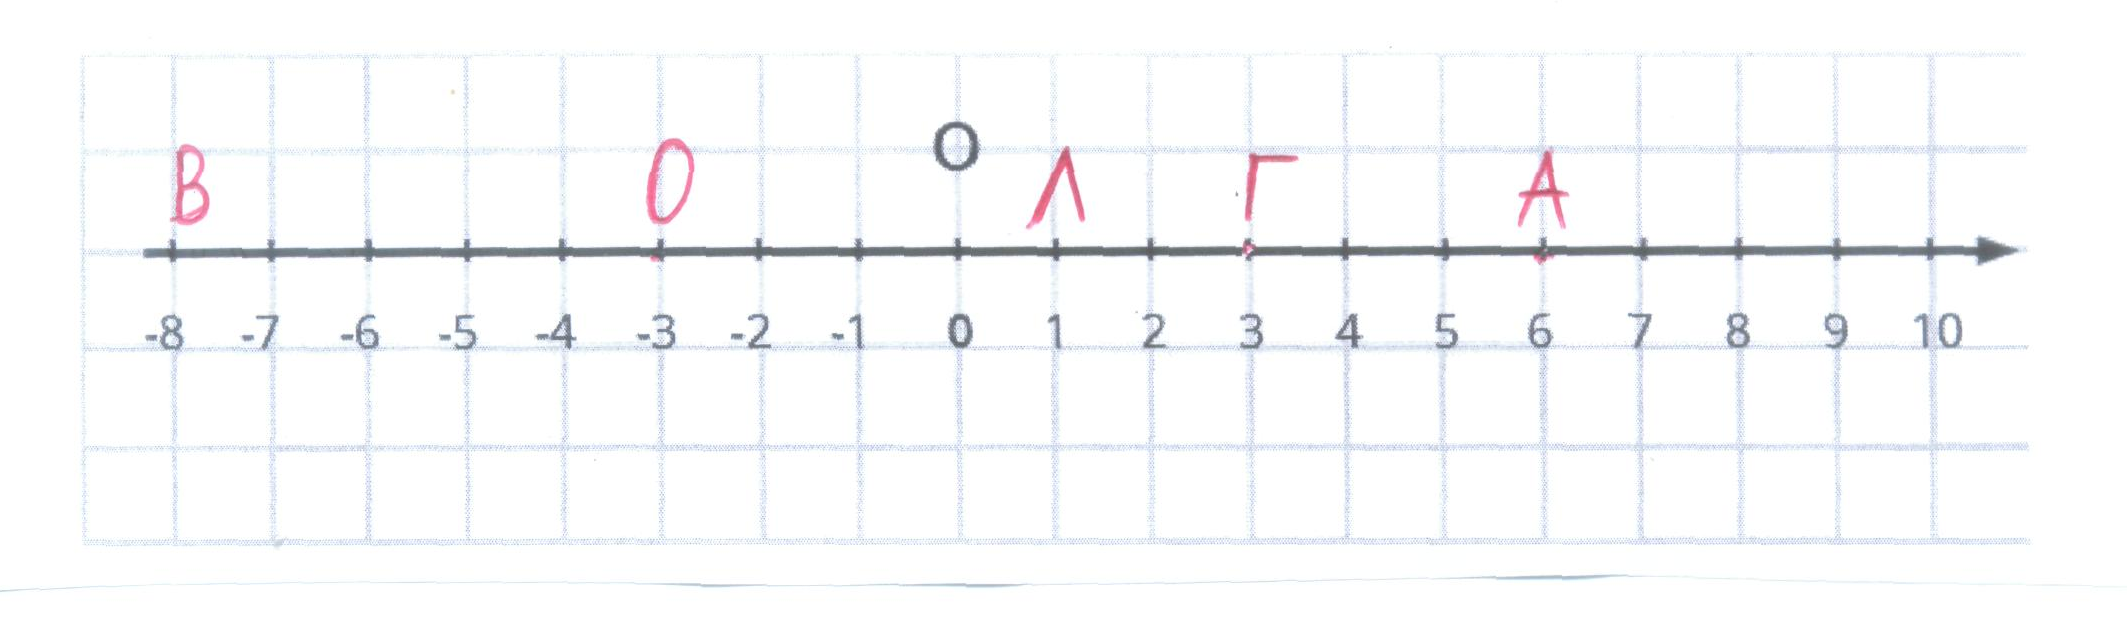 О
В О Л Г А
-8 -7 -6 -5 -4 -3 -2 -1 0 1 2 3 4 5 6 7 8 9 10